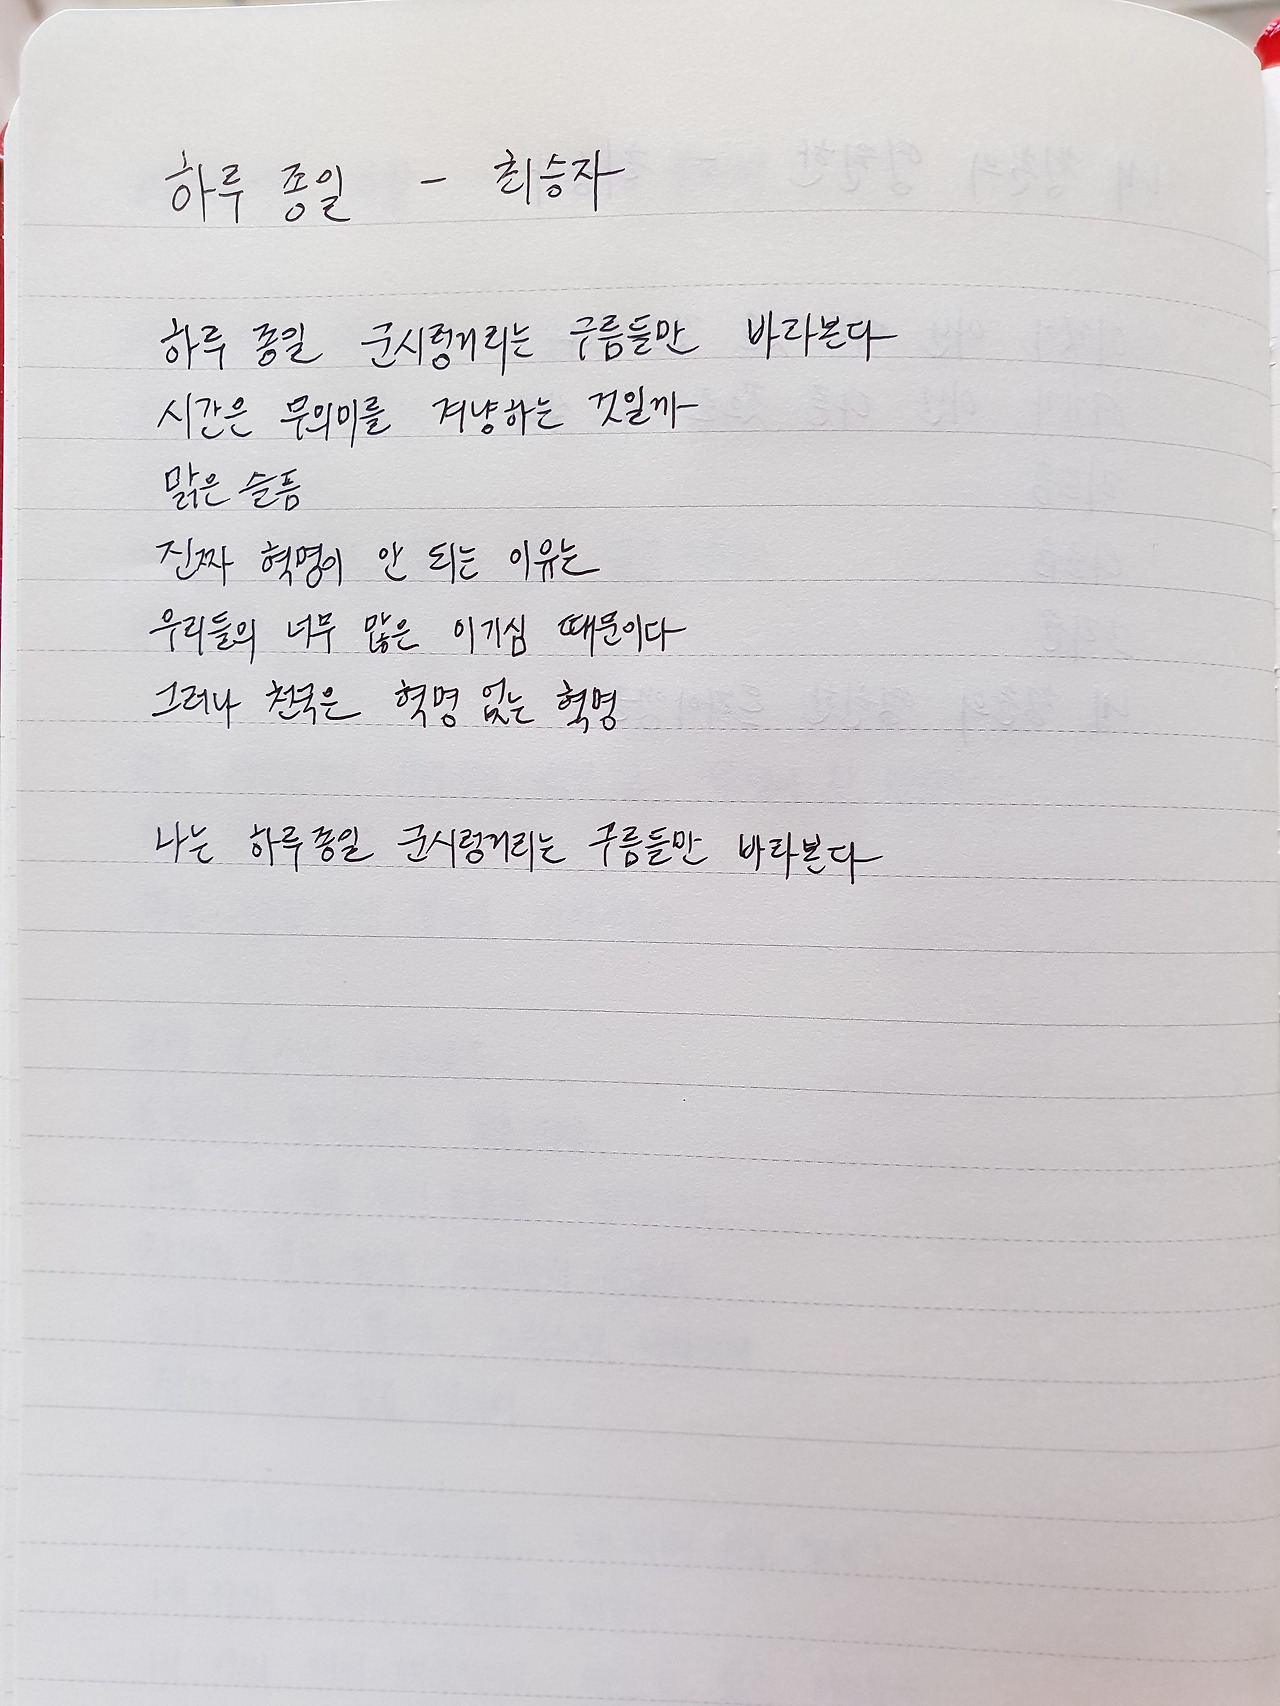 하루 종일 - 최승자
하루 종일 군시렁거리는 구름들만 바라본다
시간은 무의미를 겨냥하는 것일까
맑은 슬픔
진짜 혁명이 안 되는 이유는
우리들의 너무 많은 이기심 때문이다
그러나 천국은 혁명 없는 혁명
나는 하루종일 군시렁거리는 구름들만 바라본다